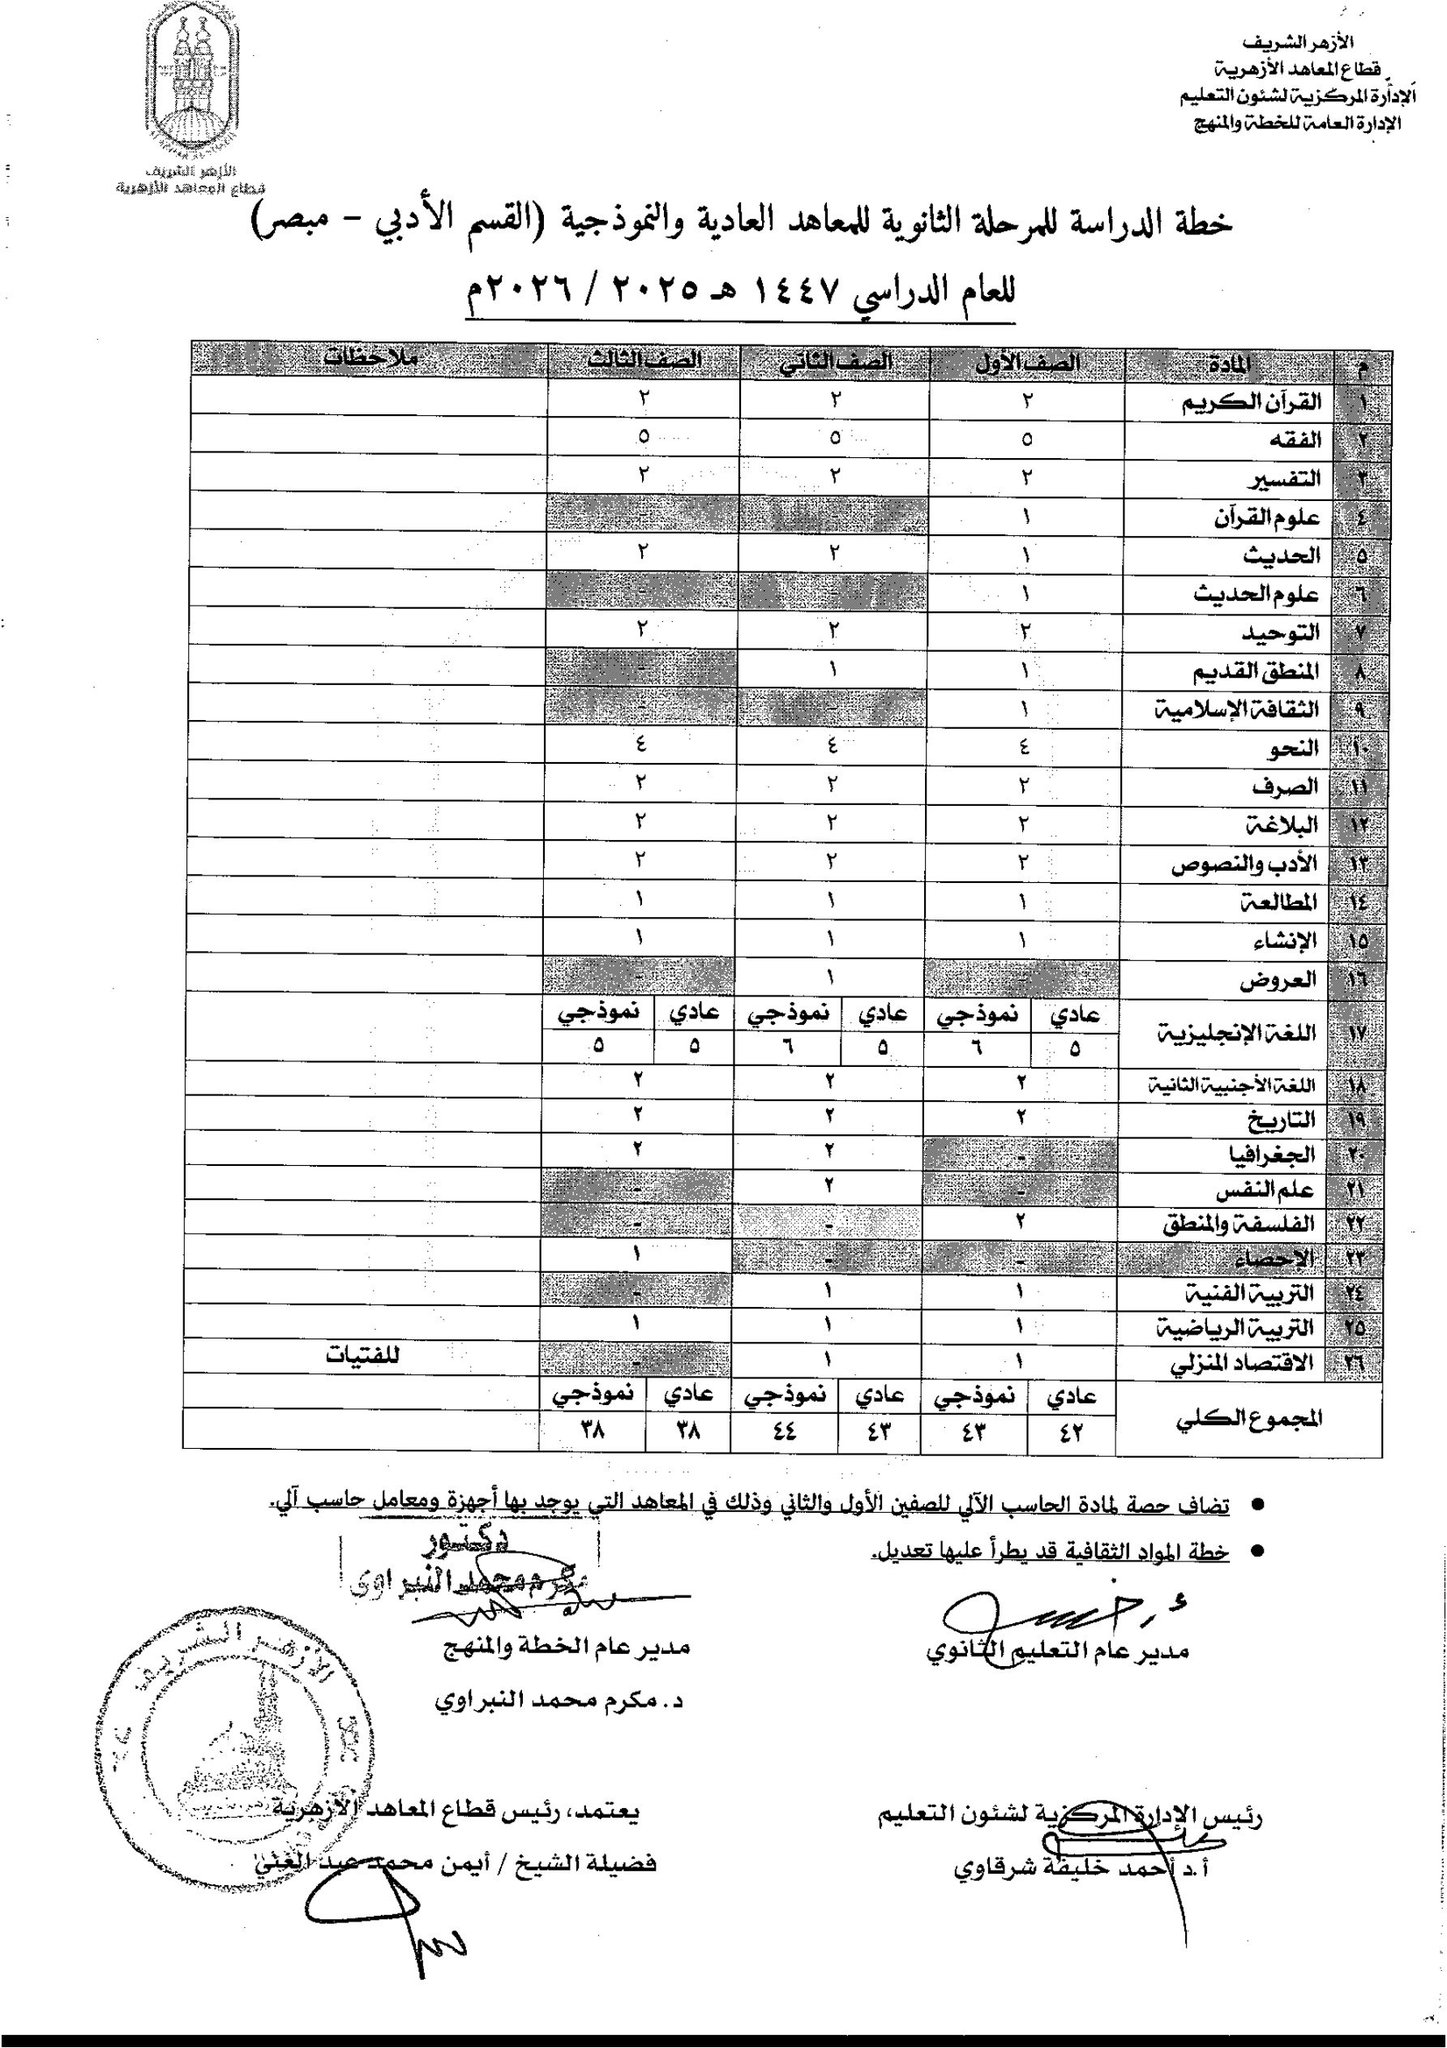 الأزهر الشريف
قطاع المعاهد الأزهرية
الإدارة المركزية لشئون التعليم
الإدارة العامة للخطة والمنهج
الأزهر الشريف
قطاع المعاهد الأزهرية
خطة الدراسة للمرحلة الثانوية للمعاهد العادية والنموذجية (القسم الأدبي - مبصر)
للعام الدراسي ١٤٤٧ هـ ٢٠٢٥ / ٢٠٢٦م
م المادة الصف الأول الصف الثاني الصف الثالث ملاحظات
١ القرآن الكريم ٢ ٢ ٢
٢ الفقه ٥ ٥ ٥
٣ التفسير ٢ ٢ ٢
٤ علوم القرآن ١ - -
٥ الحديث ١ ٢ ٢
٦ علوم الحديث ١ - -
٧ التوحيد ٢ ٢ ٢
٨ المنطق القديم ١ ١ -
٩ الثقافة الإسلامية ١ - -
١٠ النحو ٤ ٤ ٤
١١ الصرف ٢ ٢ ٢
١٢ البلاغة ٢ ٢ ٢
١٣ الأدب والنصوص ٢ ٢ ٢
١٤ المطالعة ١ ١ ١
١٥ الإنشاء ١ ١ ١
١٦ العروض - ١ -
١٧ اللغة الإنجليزية عادي نموذجي عادي نموذجي عادي نموذجي
٥ ٦ ٥ ٦ ٥ ٥
١٨ اللغة الأجنبية الثانية ٢ ٢ ٢
١٩ التاريخ ٢ ٢ ٢
٢٠ الجغرافيا - ٢ ٢
٢١ علم النفس - ٢ -
٢٢ الفلسفة والمنطق ٢ - -
٢٣ الإحصاء - - ١
٢٤ التربية الفنية ١ ١ -
٢٥ التربية الرياضية ١ ١ ١
٢٦ الاقتصاد المنزلي ١ ١ - للفتيات
المجموع الكلي عادي نموذجي عادي نموذجي عادي نموذجي
٤٢ ٤٣ ٤٣ ٤٤ ٣٨ ٣٨
• تضاف حصة لمادة الحاسب الآلي للصفين الأول والثاني وذلك في المعاهد التي يوجد بها أجهزة ومعامل حاسب آلي.
• خطة المواد الثقافية قد يطرأ عليها تعديل.
دكتور
مكرم محمد النبراوي
مدير عام التعليم الثانوي
مدير عام الخطة والمنهج
د. مكرم محمد النبراوي
الأزهر الشريف
رئيس الإدارة المركزية لشئون التعليم
أ.د أحمد خليفة شرقاوي
يعتمد، رئيس قطاع المعاهد الأزهرية
فضيلة الشيخ / أيمن محمد عبد الغني